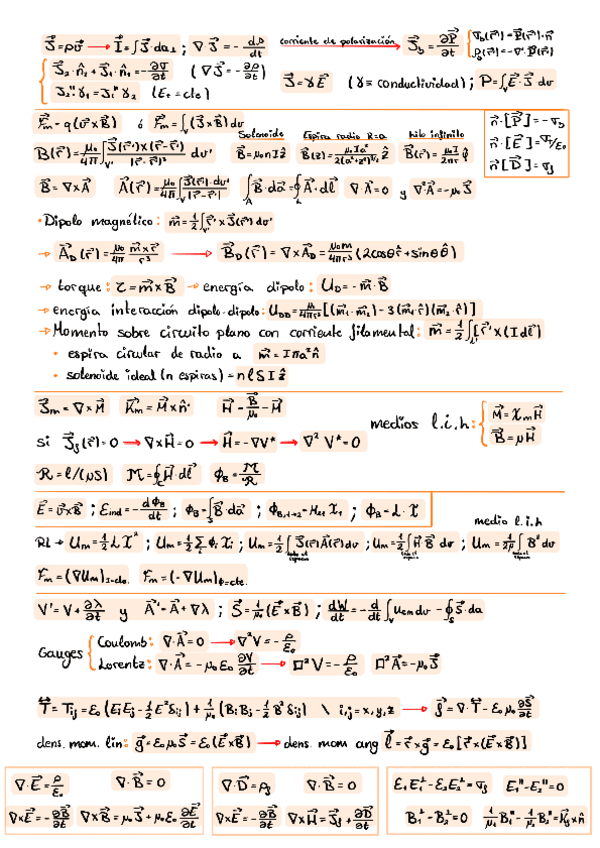 J⃗=ρv⃗ → I=∫J⃗·da⊥ ; ∇·J⃗ = -dρ/dt corriente de polarización → J⃗b = ∂P⃗/∂t { σb(r⃗)=P⃗(r⃗)·n̂
ρb(r⃗)=-∇·P⃗(r⃗)
{ J⃗2·n̂2+J⃗1·n̂1=-∂σ/∂t ; (∇J⃗=-∂ρ/∂t) J⃗=γE⃗ (γ≡conductividad) ; P=∫v E⃗·J⃗ dv
J2"γ1=J1"γ2 (Et=cte)
F⃗m=q(v⃗×B⃗) ó F⃗m=∫v(J⃗×B⃗)dv
Solenoide Espira radio R=a hilo infinito
B(r⃗)=μ0/4π ∫v' J⃗(r⃗')×(r⃗-r⃗')/|r⃗-r⃗'|³ dv' B⃗=μ0nIẑ B⃗(z)=μ0Ia²/2(a²+z²)^3/2 ẑ B⃗(r⃗)=μ0I/2πr φ̂
n̂·[P⃗]=-σb
n̂·[E⃗]=σ/ε0
n̂·[D⃗]=σf
B⃗=∇×A⃗ A⃗(r⃗)=μ0/4π ∫v' J⃗(r⃗')·dv'/|r⃗-r⃗'| ∫A B⃗·da⃗=∮L A⃗·dl⃗ ∇·A⃗=0 y ∇²A⃗=-μ0J⃗
• Dipolo magnético: m⃗=1/2∫v' r⃗'×J⃗(r⃗')dv'
→ A⃗D(r⃗)=μ0/4π m⃗×r⃗/r³ → B⃗D(r⃗)=∇×A⃗D=μ0m/4πr³ (2cosθr̂+sinθθ̂)
→ torque: τ⃗=m⃗×B⃗ → energía dipolo: UD=-m⃗·B⃗
→ energía interacción dipolo-dipolo: UDD=μ0/4πr³[(m⃗1·m⃗2)-3(m⃗1·r̂)(m⃗2·r̂)]
→ Momento sobre circuito plano con corriente filamental: m⃗=1/2∫L' r⃗'×(Idl⃗)
• espira circular de radio a m⃗=Iπa²n̂
• solenoide ideal (n espiras)=nlSIẑ
J⃗m=∇×M⃗ K⃗m=M⃗×n̂ H⃗=B⃗/μ0-M⃗ medios l.i.h: { M⃗=χmH⃗
B⃗=μH⃗
Si J⃗f(r⃗)=0 → ∇×H⃗=0 → H⃗=-∇V* → ∇²V*=0
R=l/(μS) M=∮C H⃗·dl⃗ φB=M/R
E⃗=v⃗×B⃗ ; Eind=-dφB/dt ; φB=∫S B⃗·da⃗ ; φB,1→2=M21I1 ; φB=L·I
medio l.i.h
RL → Um=1/2LI² ; Um=1/2ΣiφiIi ; Um=1/2∫J⃗(r⃗)A⃗(r⃗)dv ; Um=1/2∫H⃗B⃗dv ; Um=1/2μ∫B²dv
Fm=(∇Um)I=cte. Fm=(-∇Um)φ=cte.
V'=V+∂λ/∂t y A⃗'=A⃗+∇λ ; S⃗=1/μ0(E⃗×B⃗) ; dW/dt=-d/dt∫v uem dv-∮S⃗·da
Gauges { Coulomb: ∇·A⃗=0 → ∇²V=-ρ/ε0
Lorentz: ∇·A⃗=-μ0ε0 ∂V/∂t → □²V=-ρ/ε0 □²A⃗=-μ0J⃗
T=Tij=ε0(EiEj-1/2E²δij)+1/μ0(BiBj-1/2B²δij) \ i,j=x,y,z → f⃗=∇·T-ε0μ0 ∂S⃗/∂t
dens. mom. lin: g⃗=ε0μ0S⃗=ε0(E⃗×B⃗) → dens. mom ang l⃗=r⃗×g⃗=ε0[r⃗×(E⃗×B⃗)]
∇·E⃗=ρ/ε0 ∇·B⃗=0 ∇·D⃗=ρf ∇·B⃗=0 ε1E1⊥-ε2E2⊥=σf E1"-E2"=0
∇×E⃗=-∂B⃗/∂t ∇×B⃗=μ0J⃗+μ0ε0 ∂E⃗/∂t ∇×E⃗=-∂B⃗/∂t ∇×H⃗=J⃗f+∂D⃗/∂t B1⊥-B2⊥=0 1/μ1 B1"-1/μ2 B2"=K⃗f×n̂